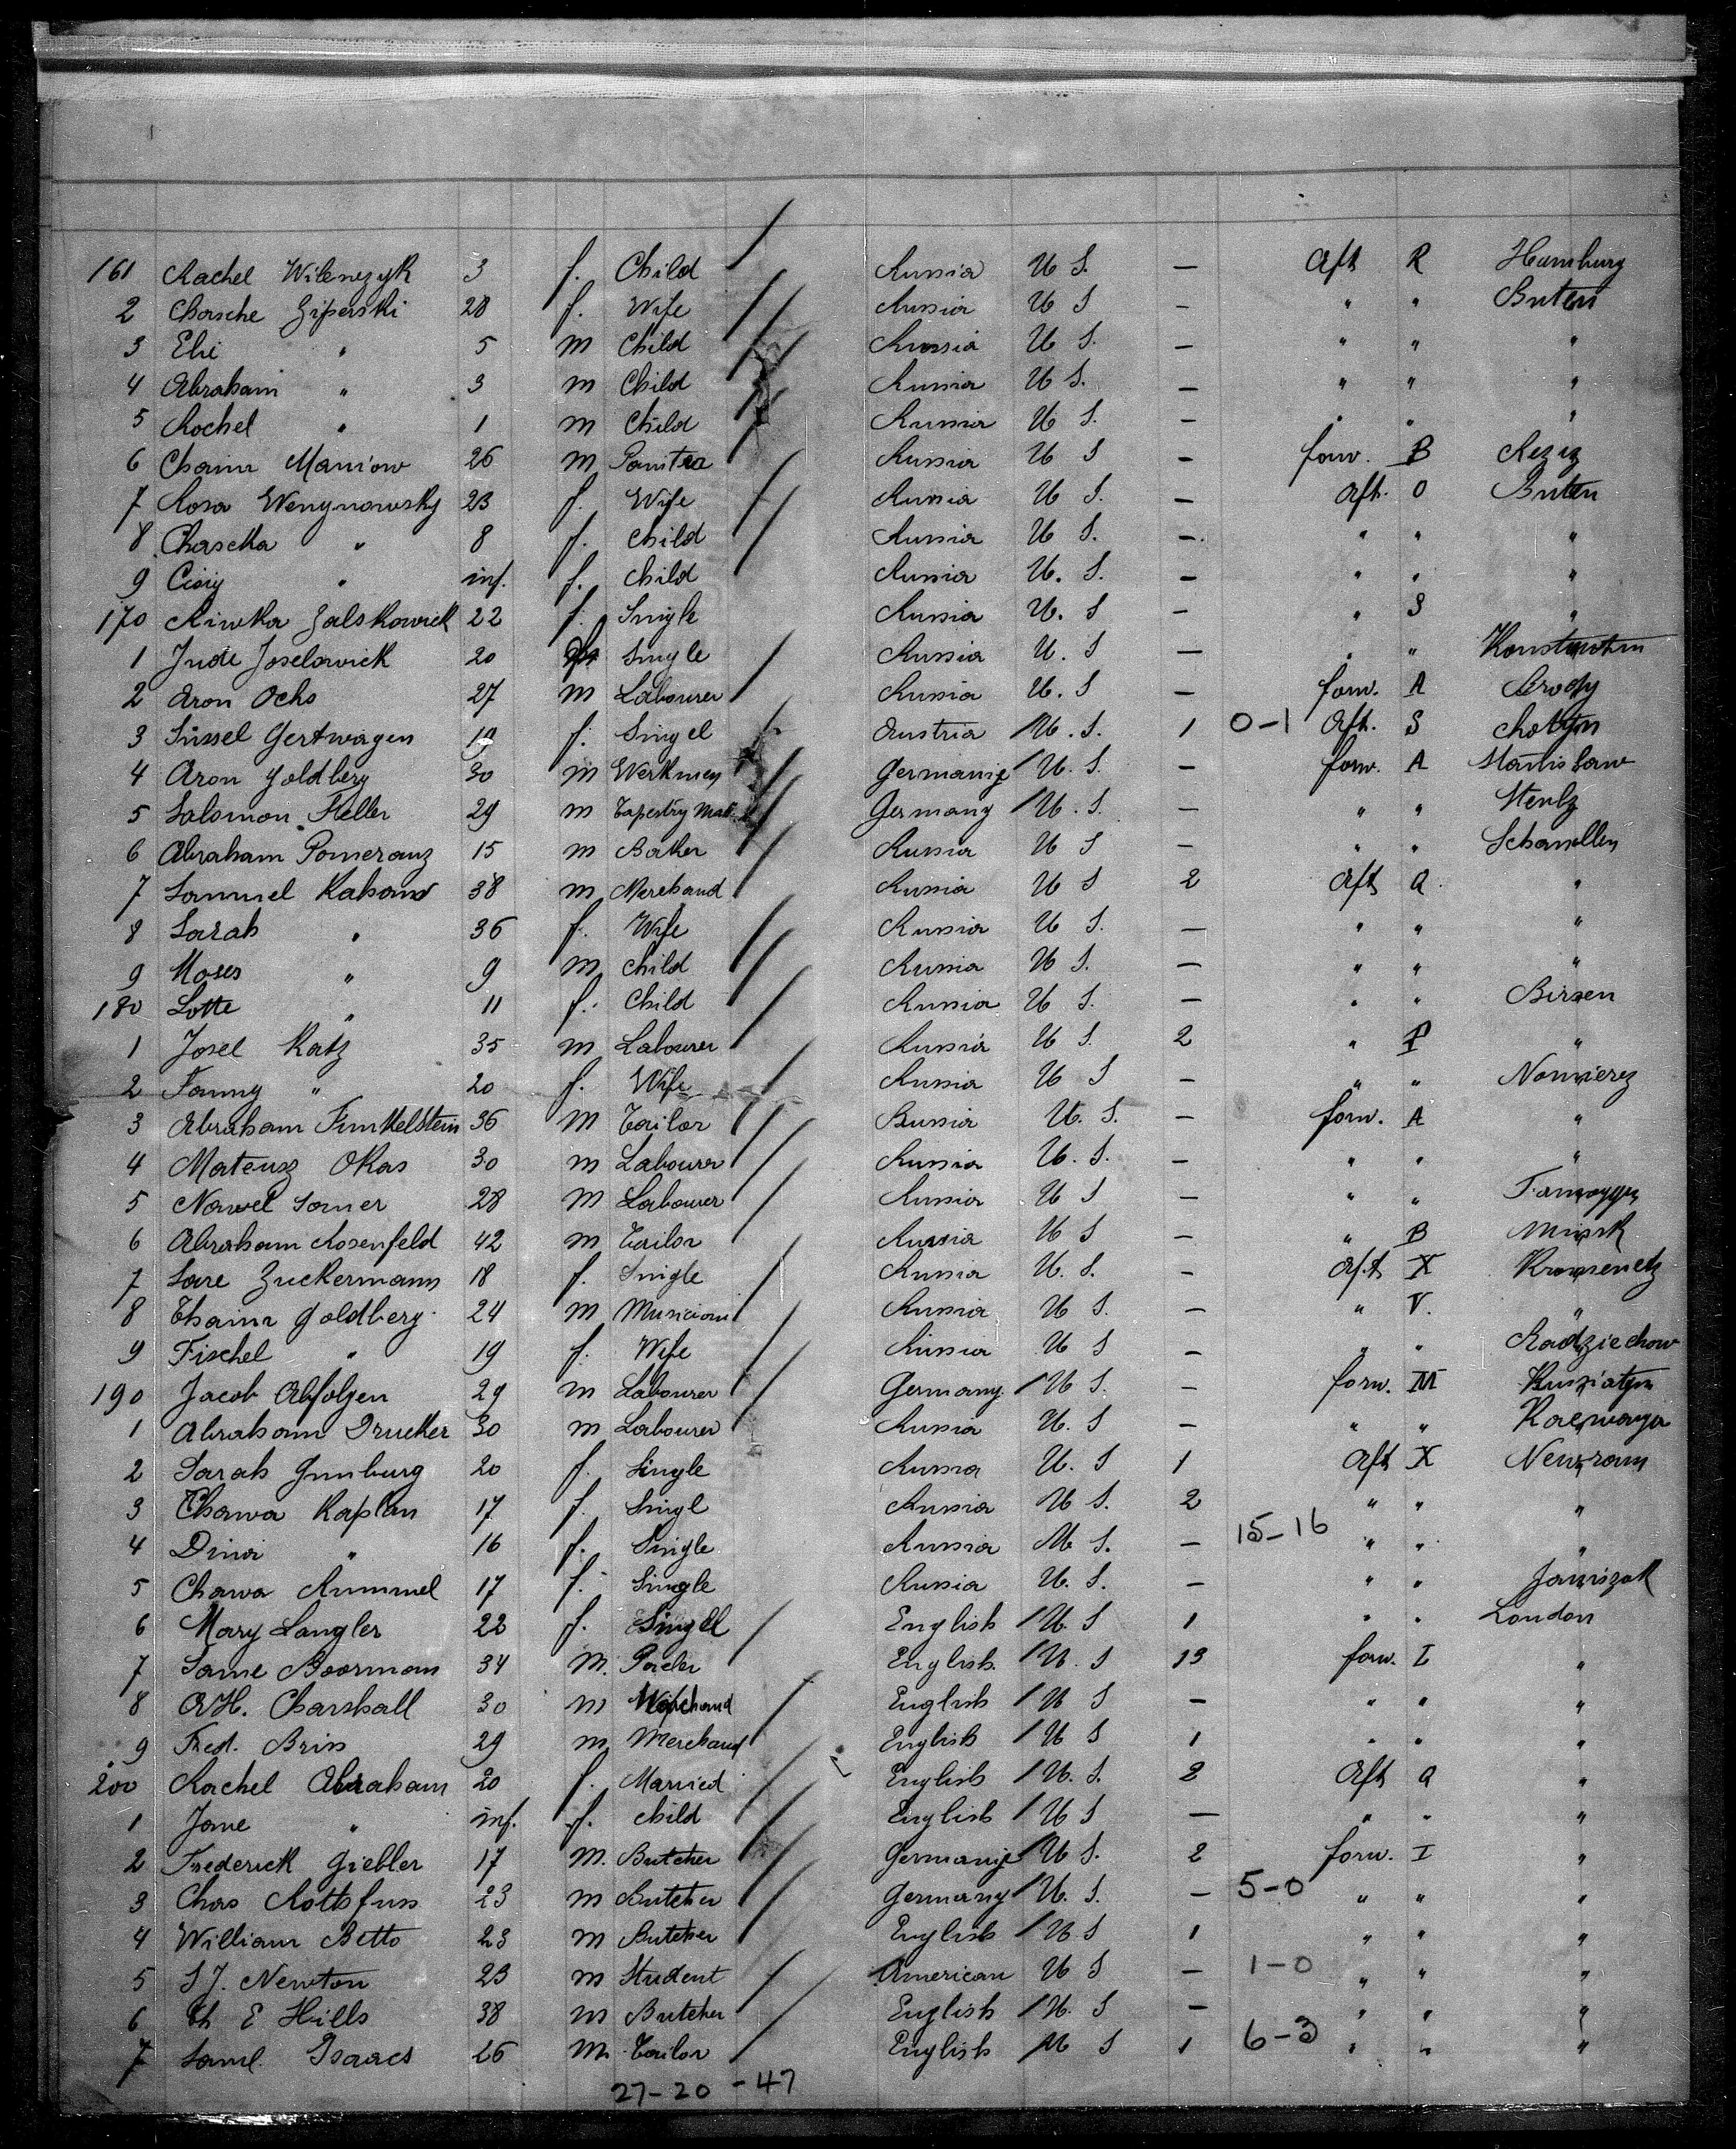 161 Rachel Wilenczyk 3 f. Child Russia U S. — Aft R Hamburg
2 Chasche Ziperski 28 f. Wife Russia U S — " " Buten
3 Eli " 5 m Child Russia U S. — " " "
4 Abraham " 3 m Child Russia U S. — " " "
5 Rochel " 1 m Child Russia U S. — " " "
6 Chaim Maniow 26 m Russia U S — forw. B
7 Rosa Wengnowsky 23 f. Wife Russia U S. — Aft. O Buten
8 Chascka " 8 f. Child Russia U S. — " " "
9 " inf. f. Child Russia U. S. — " " "
170 Riwka Zalskowick 22 f. Single Russia U. S — " S "
1 Jude Joselowick 20 Single Russia U. S — " " Konstantin
2 Aron Ochs 27 m Labourer Russia U. S — forw. A Brody
3 Süssel Gertwagen 19 f. Singel Austria U. S. 1 0-1 Aft. S Chotym
4 Aron Goldberg 30 m Werkmen Germanije U. S. — forw. A Stanislaw
5 Salomon Heller 29 m Tapestry Germany U. S. — " "
6 Abraham Pomeranz 15 m Baker Russia U S — " "
7 Sammel 38 m Merchand Russia U S 2 Aft Q "
8 Sarah " 36 f. Wife Russia U S. — " " "
9 Moses " 9 m Child Russia U S. — " " "
180 Lotte " 11 f. Child Russia U S. — " " Birsen
1 Josel Katz 35 m Labourer Russia U S. 2 " P "
2 Fanny " 20 f. Wife Russia U S — " "
3 Abraham Funkelstein 36 M Tailor Russia U. S. — forw. A "
4 Mateusz Okas 30 m Labourer Russia U. S. — " " "
5 Nawel Somer 28 m Labourer Russia U S — " "
6 Abraham Rosenfeld 42 m Tailor Russia U S — " B Minsk
7 Sare Zuckermann 18 f. Single Russia U. S. — Aft X
8 Chaim Goldberg 24 m Musician Russia U S. — " V. "
9 Fischel " 19 f. Wife Russia U S — " " Radziechow
190 Jacob Abfolgen 29 m Labourer Germany. U S. — forw. M
1 Abraham Drucker 30 m Labourer Russia U. S — " "
2 Sarah Gunburg 20 f. Single Russia U. S 1 Aft X
3 Chawa Kaplan 17 f. Singl Russia U S. 2 " " "
4 Dina " 16 f. Single Russia U. S. — 15-16 " " "
5 Chawa Rummel 17 f. Single Russia U. S. — " " Janiszok
6 Mary Langler 22 f. Singel English U. S 1 " " London
7 Same Boorman 34 M. English U. S 13 forw. I "
8 A H. Charshall 30 m Merchand English U S — " " "
9 Fred. Briss 29 m Merchand English U S 1 " " "
200 Rachel Abraham 20 f. Married English U. S. 2 Aft Q "
1 Jane " inf. f. Child English U S — " " "
2 Frederick Giebler 17 M. Butcher Germanije U S. 2 forw. I "
3 Chas Rottsfuss 23 m Butcher Germany U. S. — 5-0 " " "
4 William Betts 23 m Butcher English U S 1 " " "
5 S J. Newton 23 m Student American U S — 1-0 " " "
6 Th E Hills 38 m Butcher English U. S — " " "
7 Saml. Isaacs 26 M. Tailor English U S 1 6-3 " " "
27-20-47